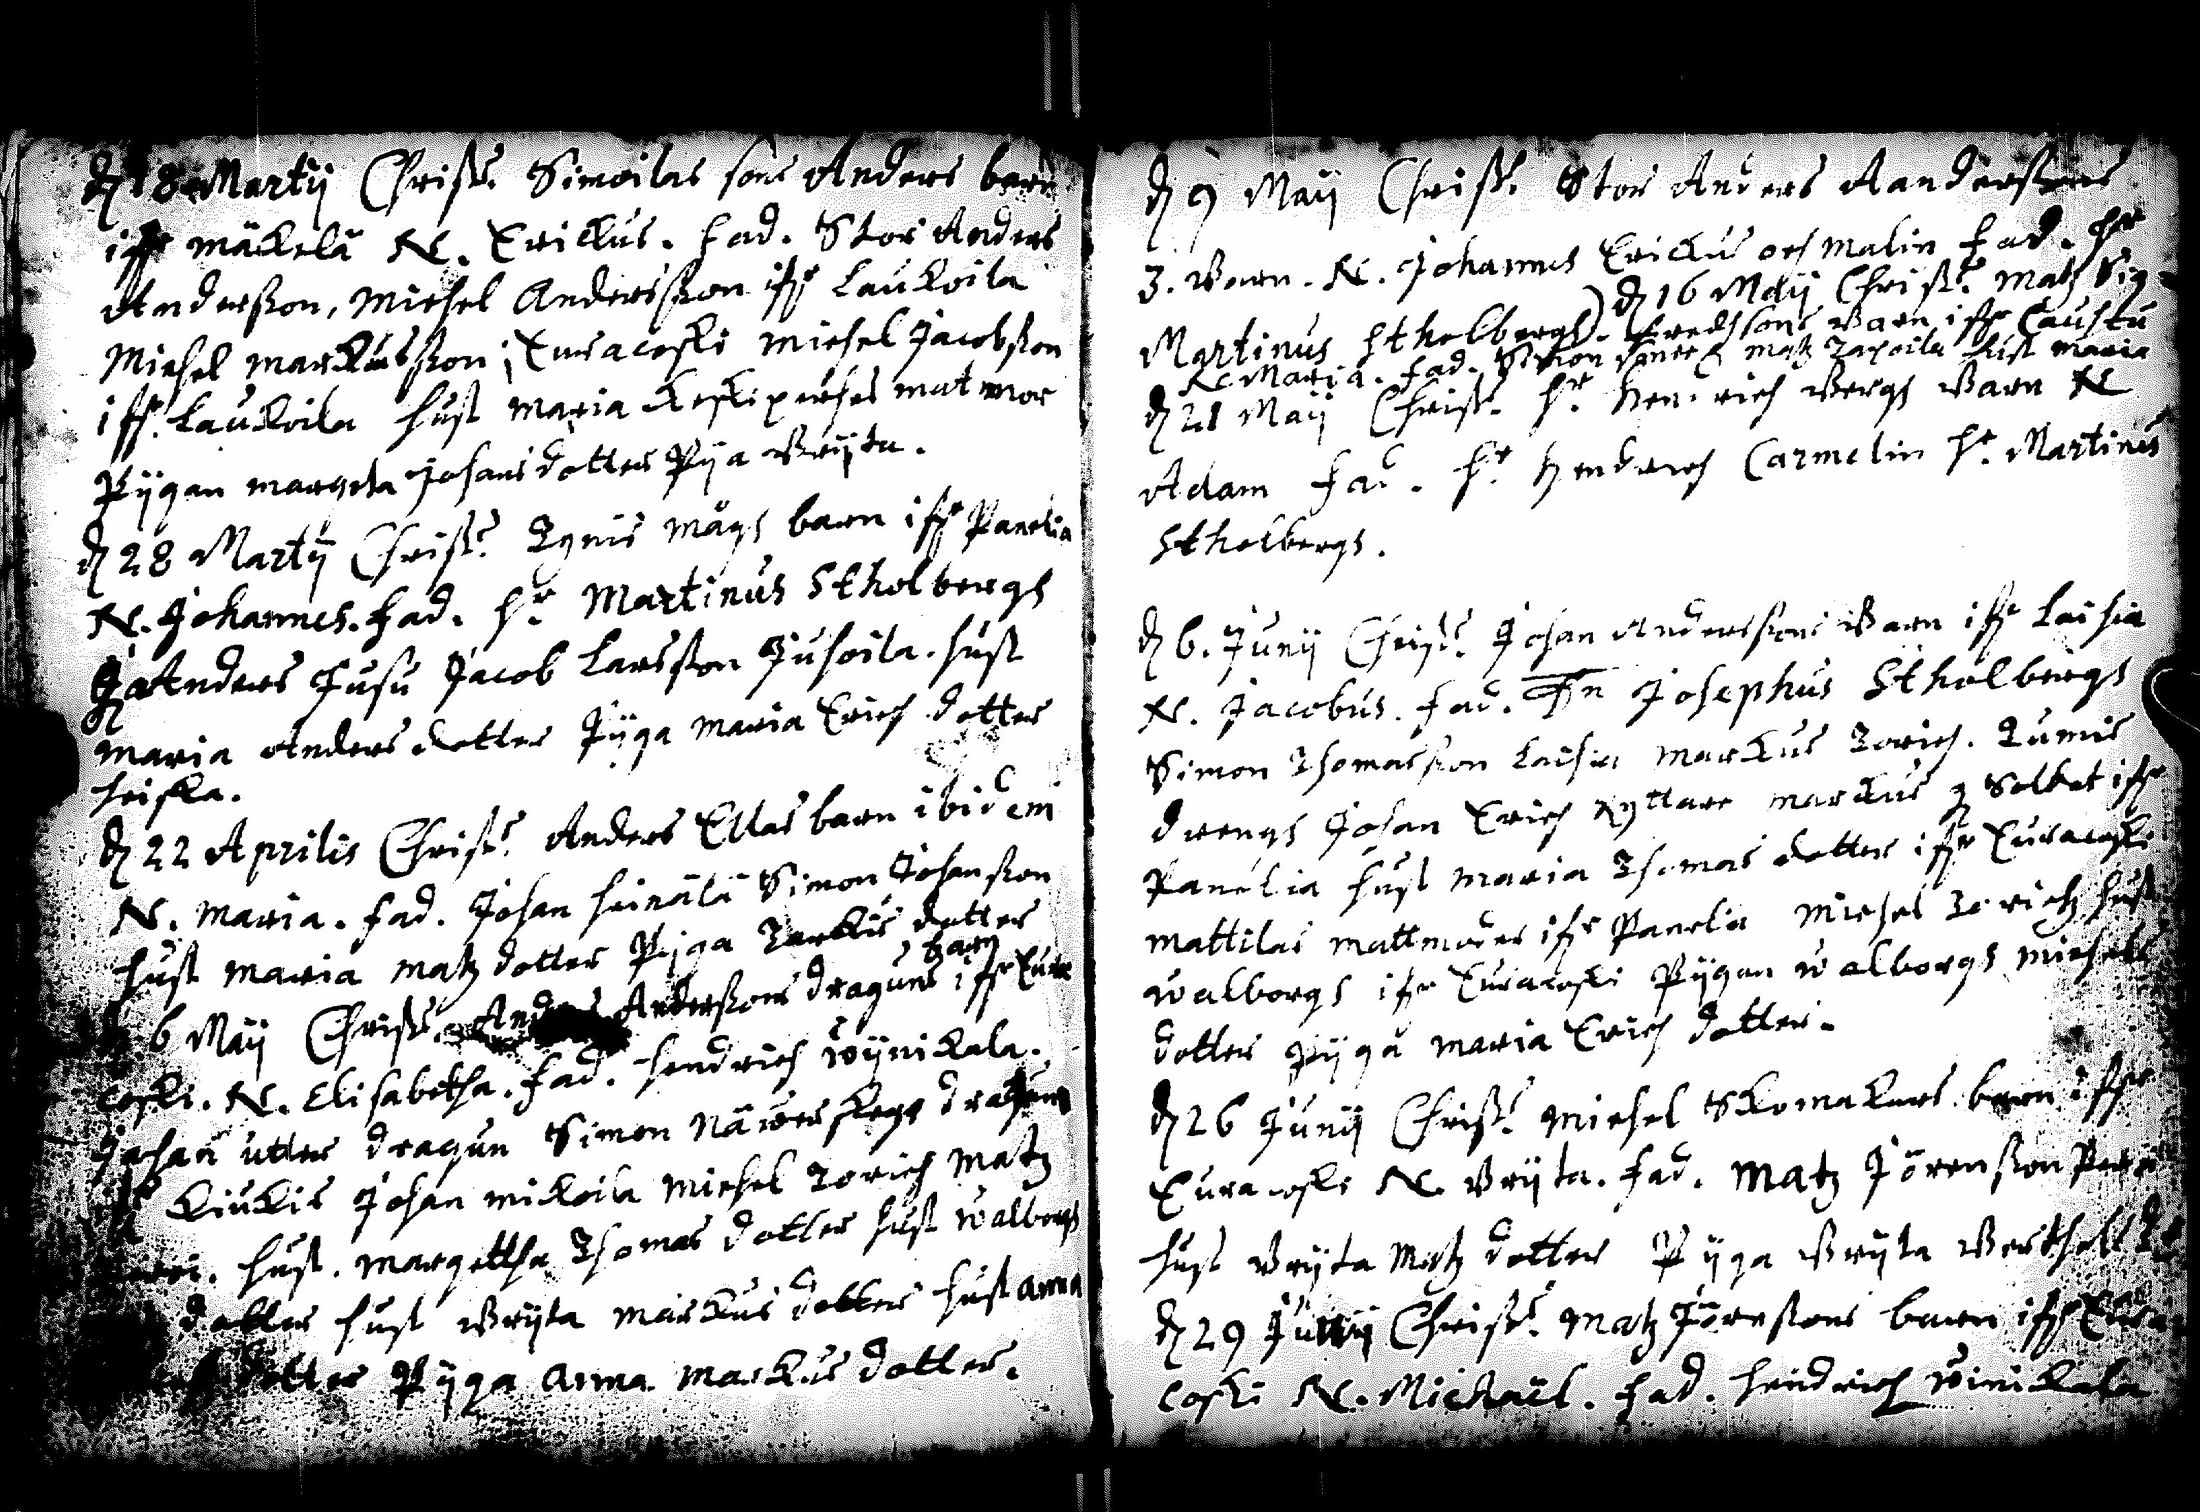 d 18 Martij Christ. Simoilas sons Anders barn
ifr mäckelä N. Erickus. Fad. Stor Anders
Andersson, Michel Andersson ifr Lauckoila
Michel marckusson Euracoski Michel Jacobsson
ifr. Lauckoila hust maria matmor
Pygan margeta Johans dotter Pya Bryta.
d 28 Martij Christ. mågs barn ifr Panelia
N. Johannes. Fad. hr Martinus Stholbergs
Anders Jusu Jacob Larsson Juhoila. hust
maria Anders dotter Pyga maria Erich dotter
heiska.
d 22 Aprilis Christ. Anders Ellas barn ibidem
N. maria. Fad. Johan heinälä Simon Johansson
hust maria matz dotter Pyga dotter
6 Maij Christ. Anders Anderssons draguns barn ifr Eura
coski. N. Elisabetha. Fad. hendrich wynickala.
Johan utter dragun Simon
kiukis Johan mickoila Michel Zorich Matz
hust. margettha Thomas dotter hust walborgs
dotter hust Bryta marckus dotter hust anna
dotter Pyga anna marckus dotter.
d 9 Maij Christ. Stor Anders Anderssons
3. Barn. N. Johannes Erickus och Malin Fad. hr
Martinus Stholbergs) d 16 Maij Christ. Matz Sig-
fredssons Barn ifr Caustu
N. Maria. Fad. Simon matz hust maria
d 21 Maij Christ. hr. Hendrich Bergs Barn N
Adam Fad. hr Hendrich Carmelin hr. Martinus
Stholbergs.
d 6. Junij Christ. Johan Anderssons Barn ifr Laihia
N. Jacobus. Fad. Josephus Stholbergs
Simon Thomasson Laihia marckus Zorich.
drengs Johan Erich Ryttare marckus Soldat ifr
Panelia hust maria Thomas dotter ifr Euracoski
mattilas mattmoder ifr Panelia Michel Zorichz hust
walborgs ifr Euracoski Pygan walborgs michels
dotter Pyga maria Erich dotter.
d 26 Junij Christ. Michel Skomakars barn ifr
Euracoski N. Bryta. Fad. Matz Jörensson
hust Bryta Matz dotter Pyga Bryta
d 29 Junij Christ. Matz Jörenssons barn ifr Eura
coski N. Michaël. Fad. hendrich winickala